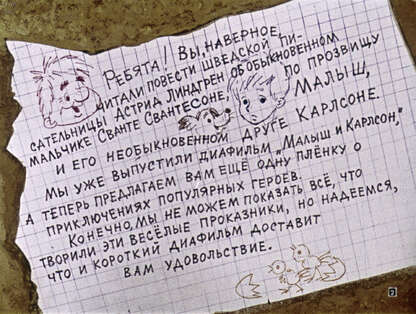 Ребята! Вы, наверное,
читали повести шведской пи-
сательницы Астрид Линдгрен об обыкновенном
мальчике Сванте Свантесоне, по прозвищу
Малыш,
и его необыкновенном друге Карлсоне.
Мы уже выпустили диафильм „Малыш и Карлсон,"
а теперь предлагаем вам ещё одну плёнку о
приключениях популярных героев.
Конечно, мы не можем показать всё, что
творили эти весёлые проказники, но надеемся,
что и короткий диафильм доставит
вам удовольствие.